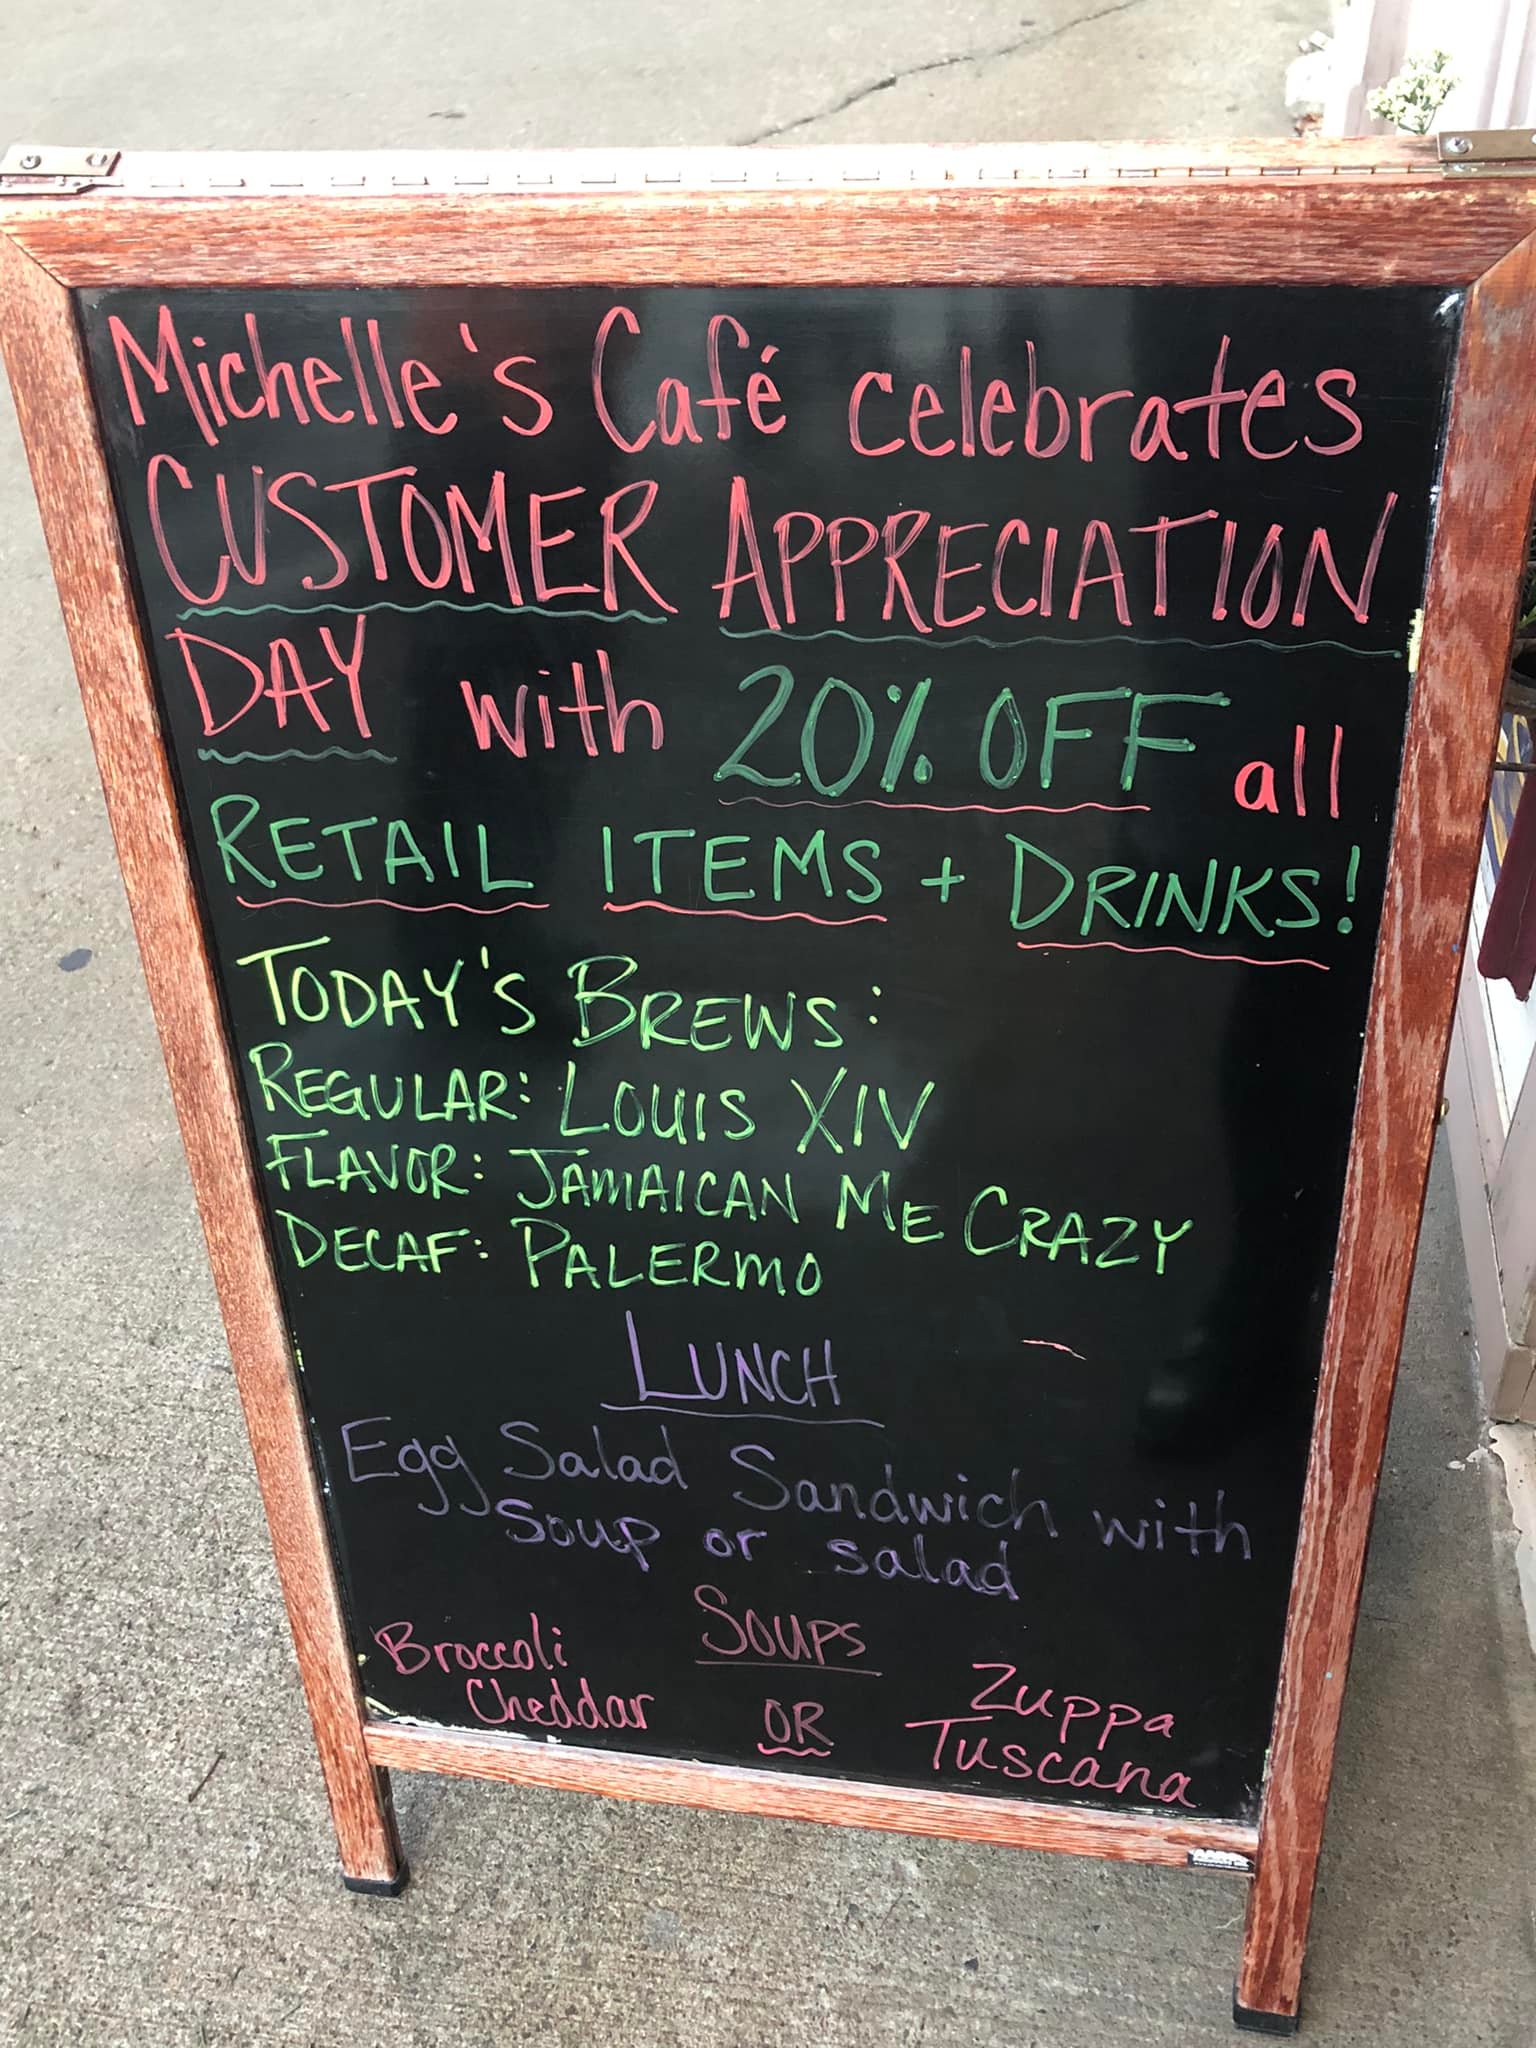 Michelle's Café celebrates
CUSTOMER APPRECIATION
DAY with 20% OFF all
RETAIL ITEMS + DRINKS!
TODAY'S BREWS:
REGULAR: LOUIS XIV
FLAVOR: JAMAICAN ME CRAZY
DECAF: PALERMO
LUNCH
Egg Salad Sandwich with
Soup or salad
SOUPS
Broccoli
Cheddar
OR
Zuppa
Tuscana